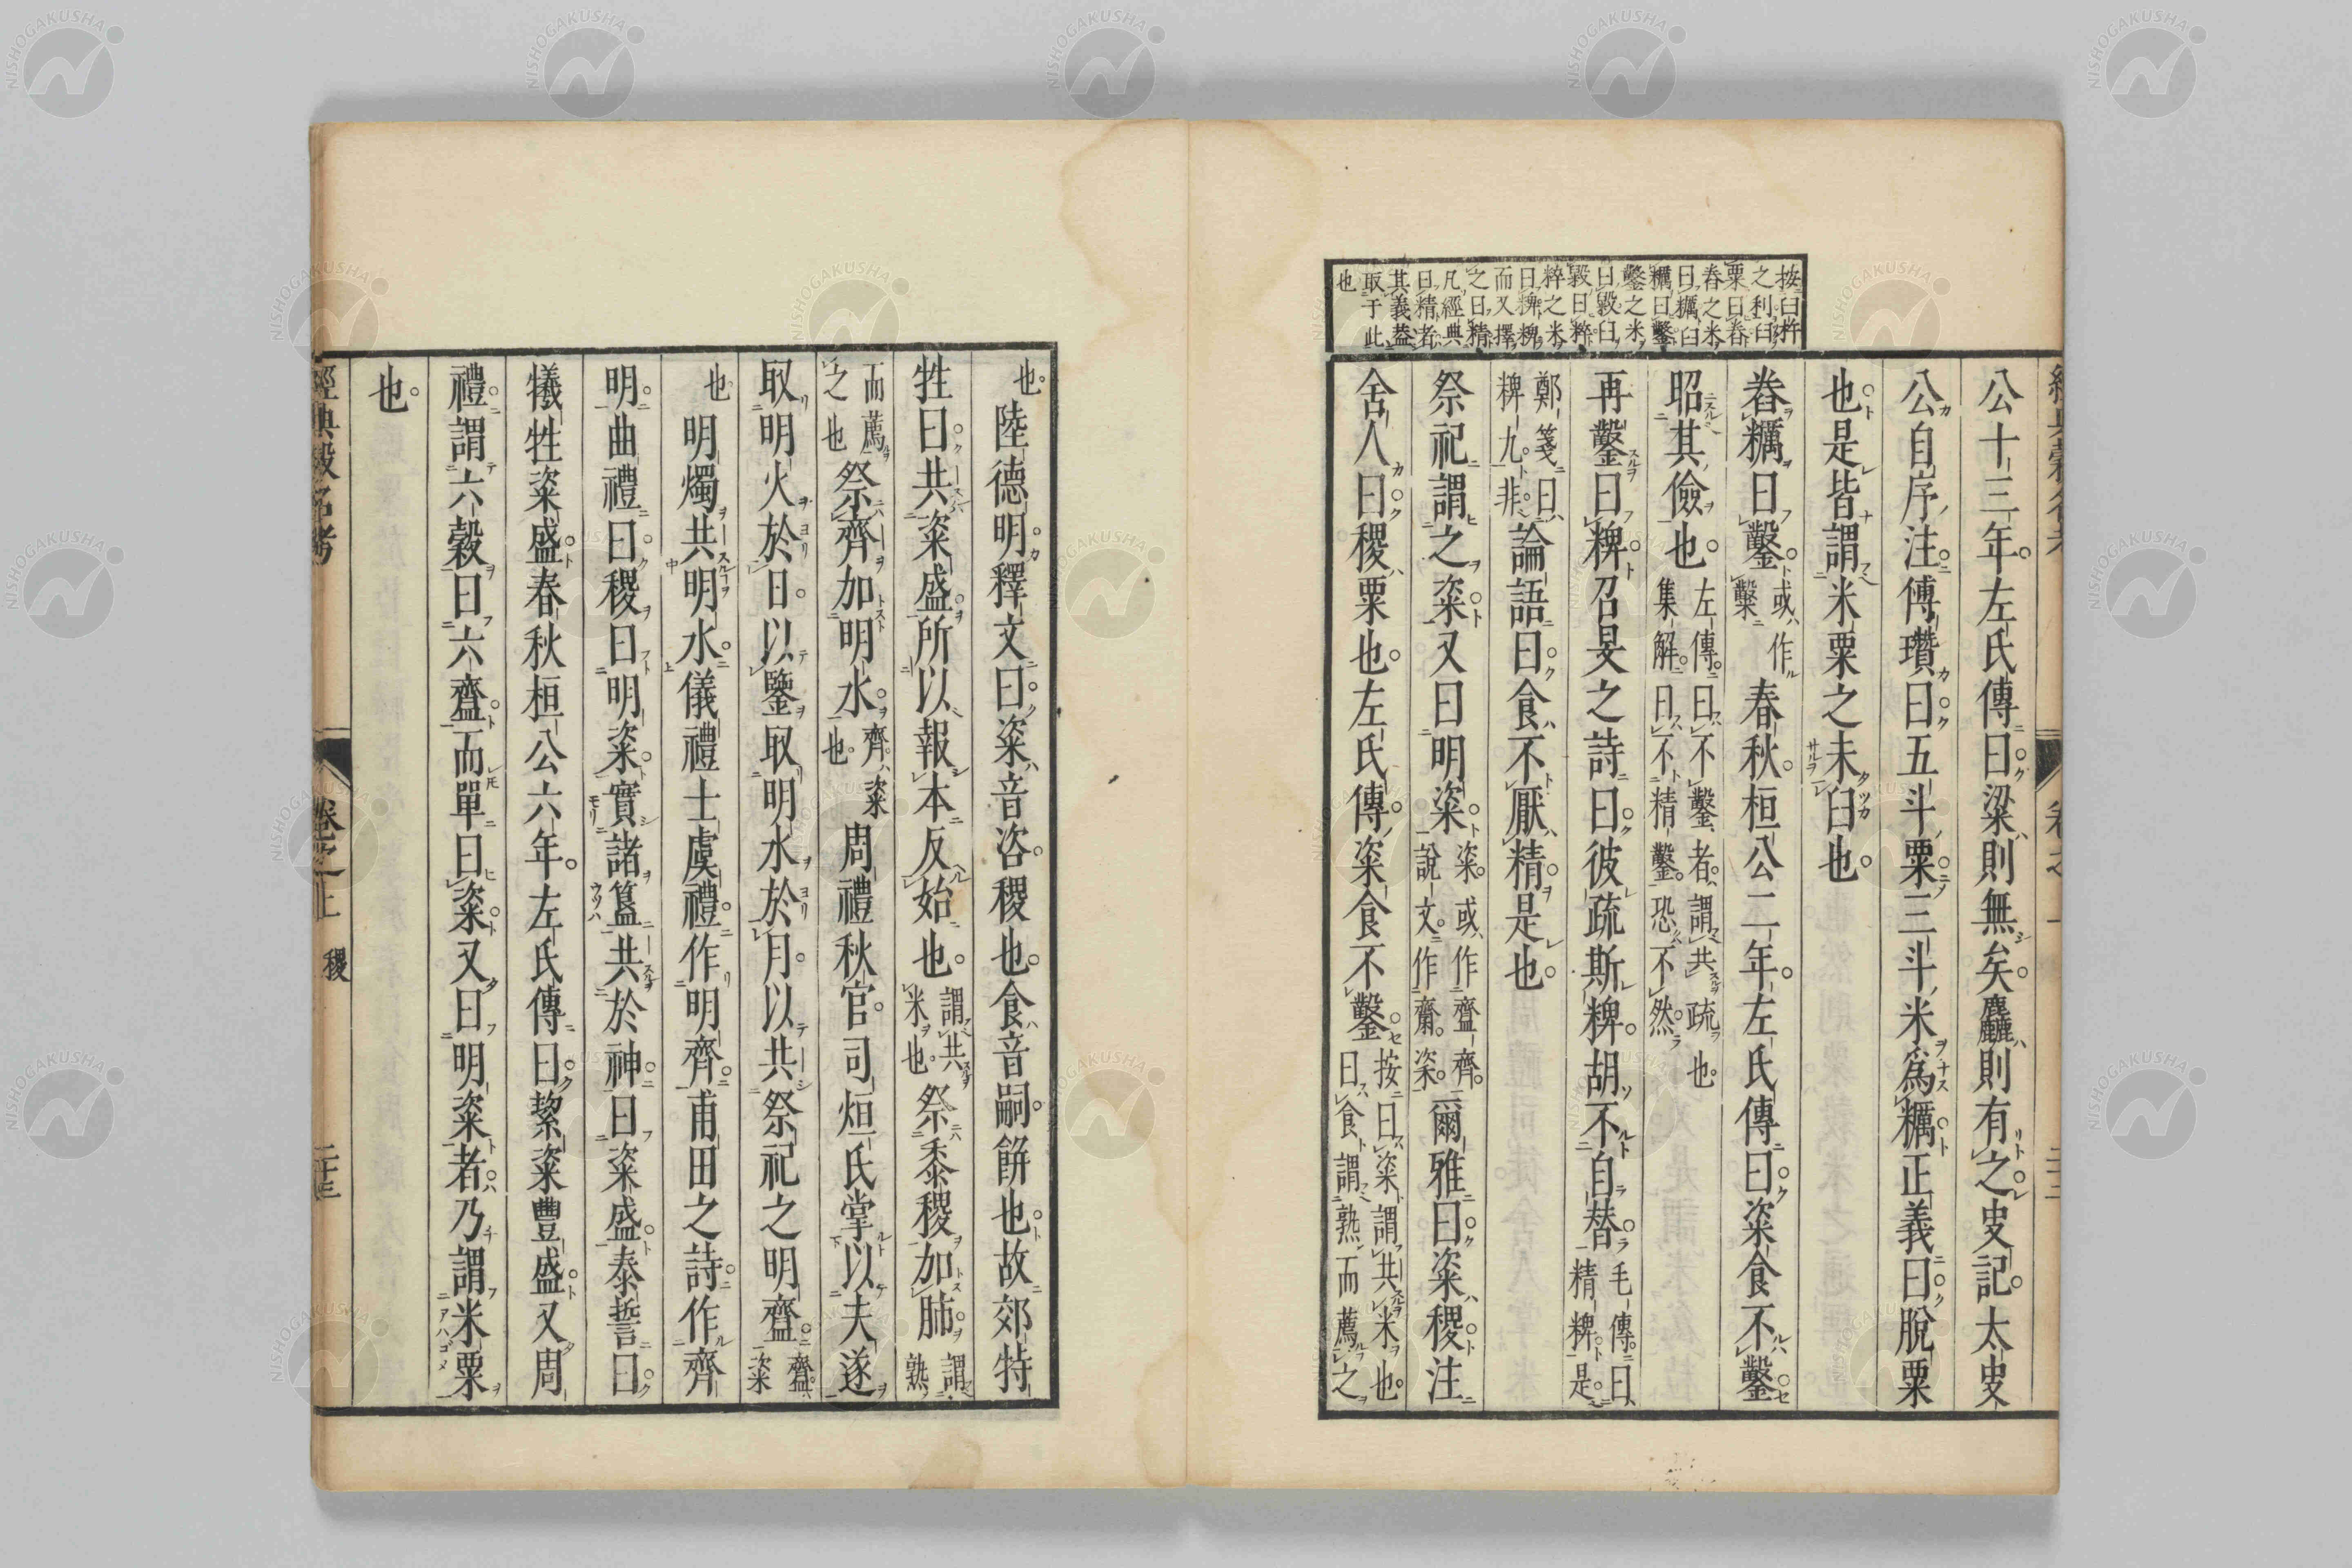 按臼杵
之利臼
粟曰舂
舂之米
曰糲臼
糲曰鑿
鑿之米
曰毇臼
毇曰粹
粹之米
曰粺粺
而又擇
之曰精
凡經典
曰精者
其義蓋
取于此
也
公十三年左氏傳曰粱則無矣麤則有之史記太史
公自序注傅瓚曰五斗粟三斗米爲糲正義曰脫粟
也是皆謂米粟之未臼也
舂糲曰鑿或作糳春秋桓公二年左氏傳曰粢食不鑿
昭其儉也左傳曰不鑿者謂共疏也集解曰不精鑿恐不然
再鑿曰粺召旻之詩曰彼疏斯粺胡不自替毛傳曰精粺是
鄭箋曰粺九非論語曰食不厭精是也
祭祀謂之粢又曰明粢粢或作齍齊說文作齋粢爾雅曰粢稷注
舍人曰稷粟也左氏傳粢食不鑿按曰粢謂共米也曰食謂熟而薦之
也陸德明釋文曰粢音咨稷也食音嗣餅也故郊特
牲曰共粢盛所以報本反始也謂共米也祭黍稷加肺謂熟
而薦之也祭齊加明水齊粢也周禮秋官司烜氏掌以夫遂
取明火於日以鑒取明水於月以共祭祀之明齍齍粢
也明燭共明水儀禮士虞禮作明齊甫田之詩作齊
明曲禮曰稷曰明粢實諸簋共於神曰粢盛泰誓曰
犧牲粢盛春秋桓公六年左氏傳曰絜粢豐盛又周
禮謂六穀曰六齍而單曰粢又曰明粢者乃謂米粟
也
經典穀名考
卷之上
稷
二十三